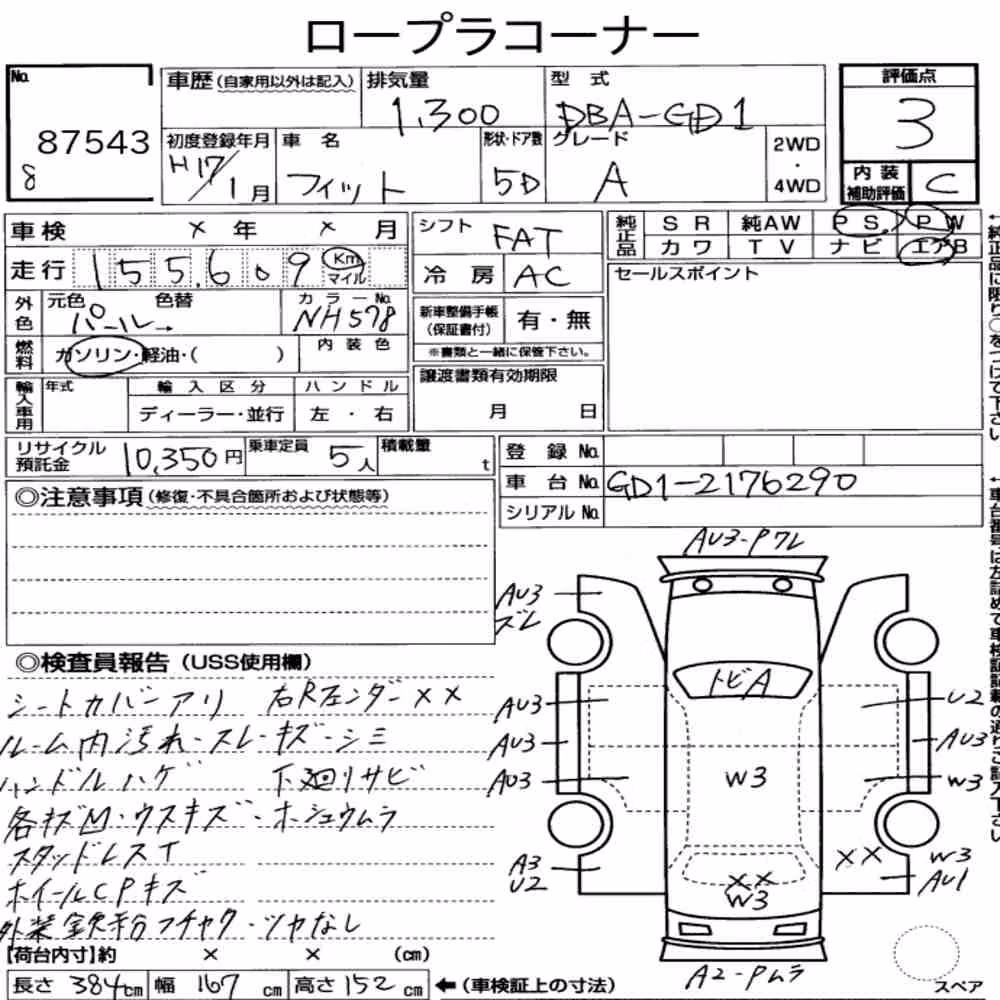 ロープラコーナー
No. 87543
8
車歴(自家用以外は記入)
排気量 1,300
型式 DBA-GD1
評価点 3
初度登録年月 H17/1月
車名 フィット
形状・ドア数 5D
グレード A
2WD・4WD
内装補助評価 C
車検 × 年 × 月
シフト FAT
純正品 SR 純AW PS PW
カワ TV ナビ エアB
走行 155,609 Km マイル
冷房 AC
セールスポイント
外色 元色 パール→ 色替
カラーNo. NH578
新車整備手帳(保証書付) 有・無
※書類と一緒に保管下さい。
燃料 ガソリン・軽油・( )
内装色
輸入車用 年式 輸入区分 ハンドル
ディーラー・並行 左・右
譲渡書類有効期限
月 日
リサイクル預託金 10,350円
乗車定員 5人
積載量 t
登録No.
車台No. GD1-2176290
シリアルNo.
◎注意事項(修復・不具合箇所および状態等)
◎検査員報告(USS使用欄)
シートカバーアリ 右Rフェンダー××
ルーム内汚れ・スレ・キズ・シミ
ハンドルハゲ 下廻りサビ
各キズM・ウスキズ・ホシュウムラ
スタッドレスT
ホイールCPキズ
外装鉄粉フチャク・ツヤなし
AU3-Pワレ
AU3
ズレ
トビA
AU3
U2
AU3
AU3
AU3
W3
W3
A3
U2
××
W3
AU1
××
W3
A2-Pムラ
スペア
【荷台内寸】約 × × (cm)
長さ 384cm 幅 167cm 高さ 152cm
←(車検証上の寸法)
↑純正品に限り○をつけて下さい。
↑車台番号は左詰めで車検証記載の通りご記入下さい